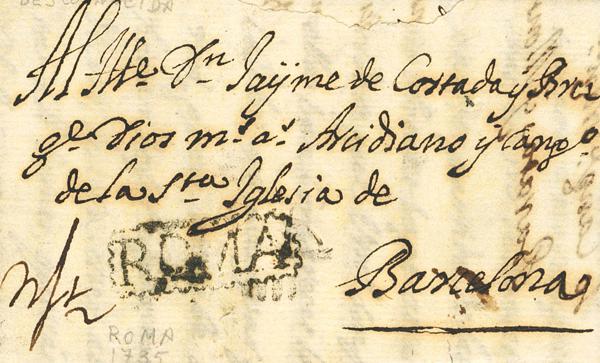 DESCONOCIDA
Al Ille Dn Jaÿme de Cortada y Bru
ge Dios ms as Arcidiano y Cango
de la Sta Iglesia de
ROMA
Barcelona
ROMA
1735